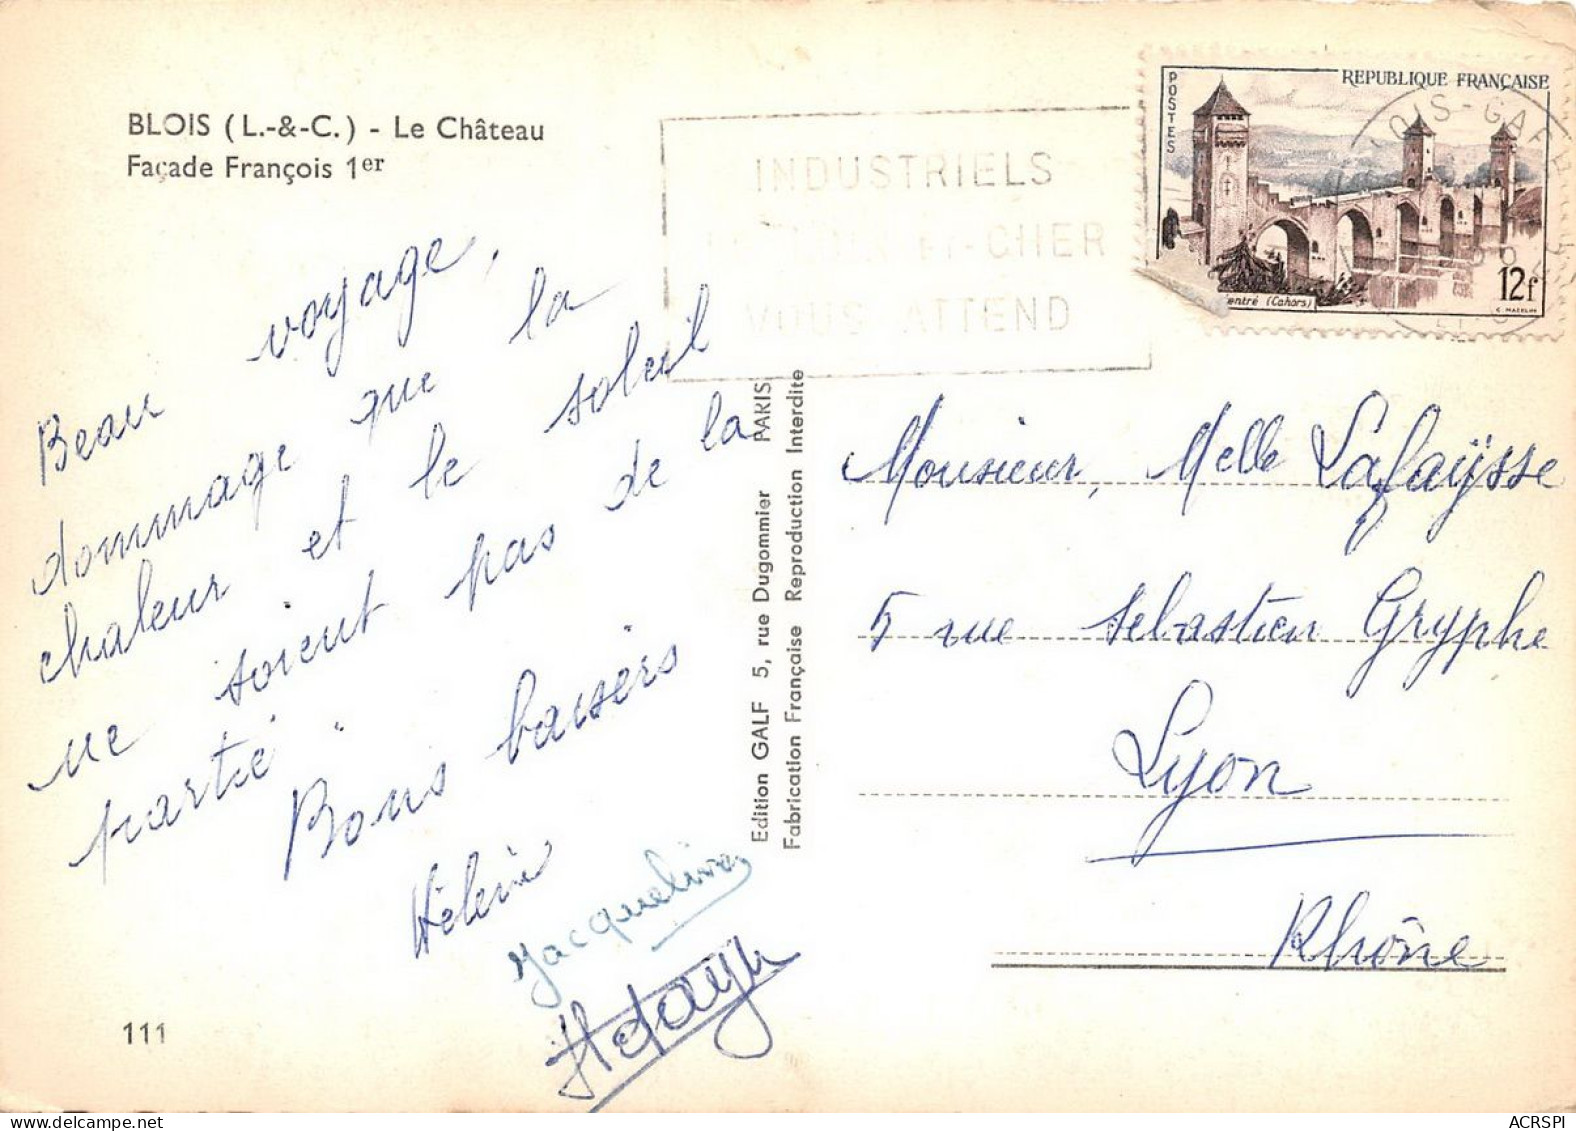 BLOIS (L.-&-C.) - Le Château
Façade François 1er
Beau voyage,
dommage que la
chaleur et le soleil
ne soient pas de la
partie"
Bons baisers
Hélène
Jacqueline
111
Edition GALF 5, rue Dugommier PARIS
Fabrication Française Reproduction Interdite
INDUSTRIELS
ET-CHER
VOUS ATTEND
POSTES
REPUBLIQUE FRANÇAISE
entré (Cahors)
12f
C. MAZELIN
OIS-GARE
Monsieur, Melle Lafaÿsse
5 rue Sebastien Gryphe
Lyon
Rhône
ACRSPI